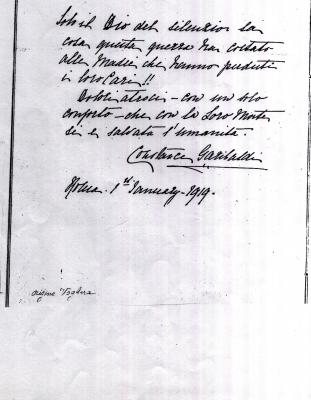 Solo il Dio del silenzio sa
cosa questa guerra ha costato
alle Madri che hanno perduto
i loro Cari!!
Dolori atroci - con un solo
conforto - che con la Loro Morte
si è salvata l'umanità.
Constance Garibaldi
Roma. 1st January - 1919.